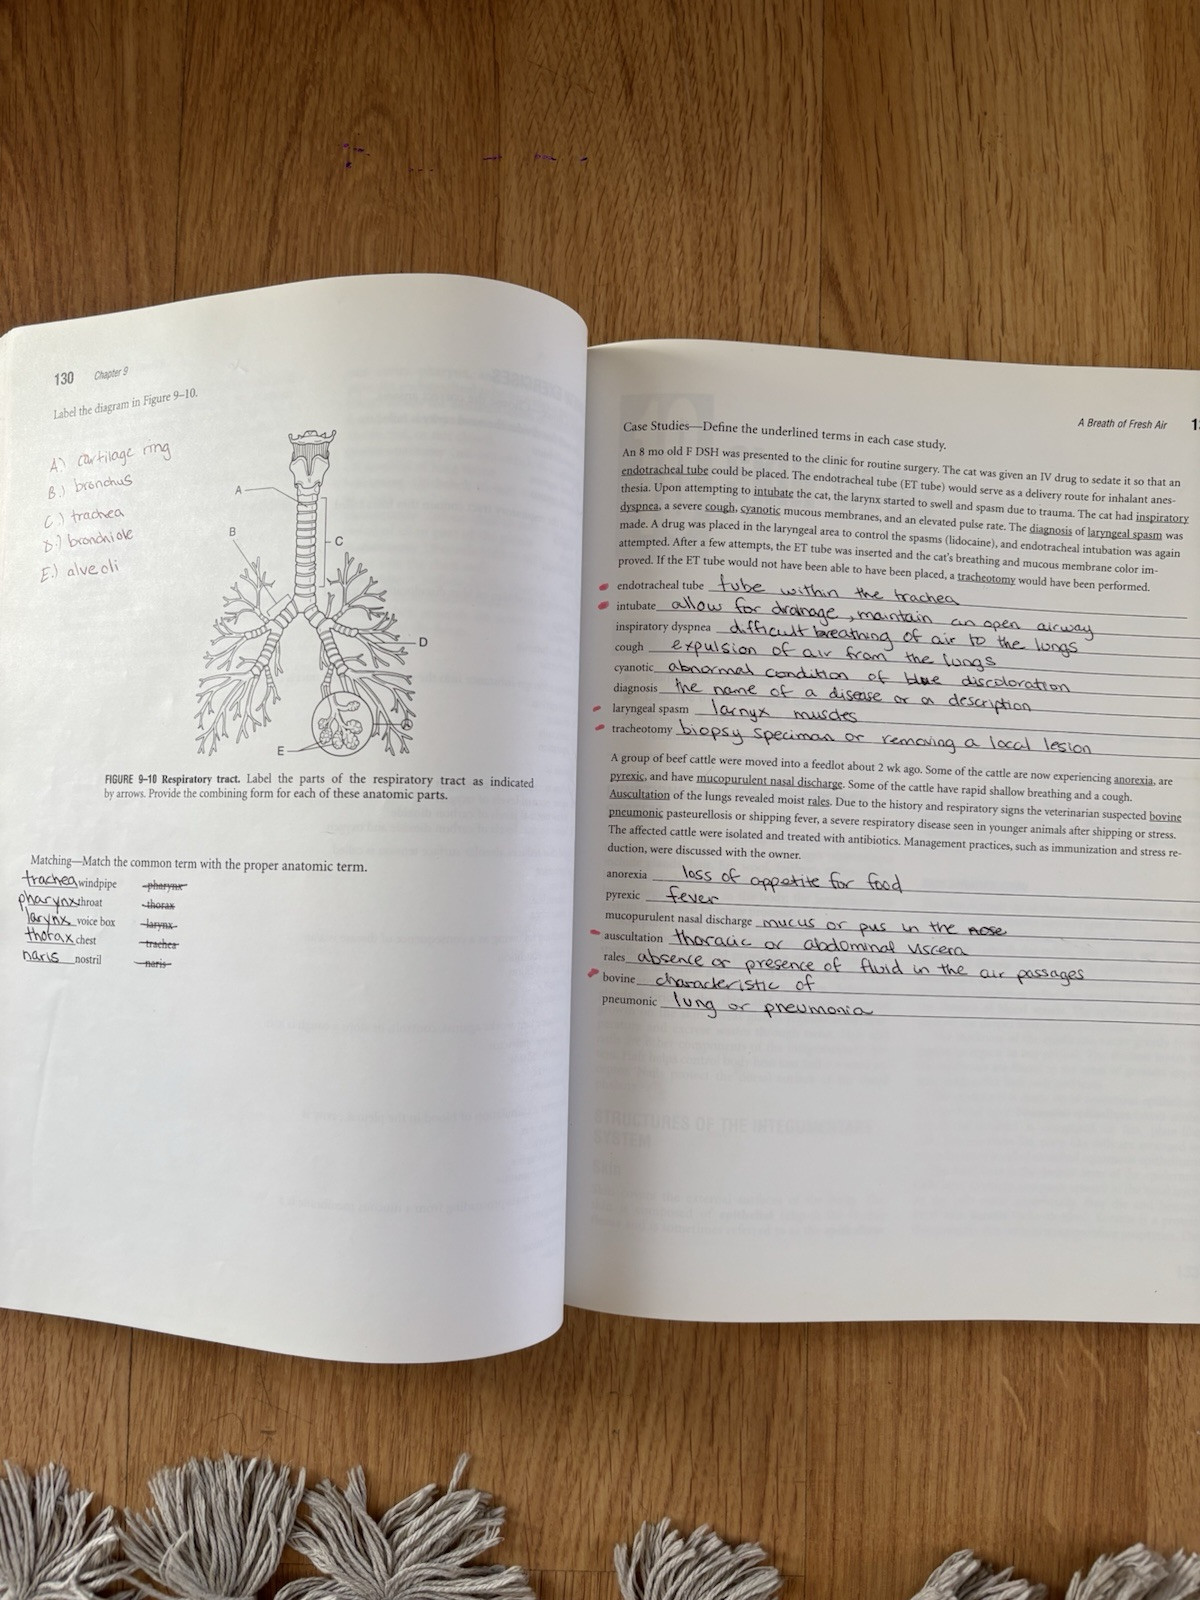 130 Chapter 9
Label the diagram in Figure 9–10.
A) cartilage ring
B.) bronchus
C.) trachea
D.) bronchiole
E.) alveoli
A
B
C
D
E
FIGURE 9–10 Respiratory tract. Label the parts of the respiratory tract as indicated
by arrows. Provide the combining form for each of these anatomic parts.
Matching—Match the common term with the proper anatomic term.
trachea windpipe pharynx
pharynx throat thorax
larynx voice box larynx
thorax chest trachea
naris nostril naris
A Breath of Fresh Air
Case Studies—Define the underlined terms in each case study.
An 8 mo old F DSH was presented to the clinic for routine surgery. The cat was given an IV drug to sedate it so that an
endotracheal tube could be placed. The endotracheal tube (ET tube) would serve as a delivery route for inhalant anes-
thesia. Upon attempting to intubate the cat, the larynx started to swell and spasm due to trauma. The cat had inspiratory
dyspnea, a severe cough, cyanotic mucous membranes, and an elevated pulse rate. The diagnosis of laryngeal spasm was
made. A drug was placed in the laryngeal area to control the spasms (lidocaine), and endotracheal intubation was again
attempted. After a few attempts, the ET tube was inserted and the cat's breathing and mucous membrane color im-
proved. If the ET tube would not have been able to have been placed, a tracheotomy would have been performed.
endotracheal tube tube within the trachea
intubate allow for drainage, maintain an open airway
inspiratory dyspnea difficult breathing of air to the lungs
cough expulsion of air from the lungs
cyanotic abnormal condition of blue discoloration
diagnosis the name of a disease or a description
laryngeal spasm larnyx muscles
tracheotomy biopsy speciman or removing a local lesion
A group of beef cattle were moved into a feedlot about 2 wk ago. Some of the cattle are now experiencing anorexia, are
pyrexic, and have mucopurulent nasal discharge. Some of the cattle have rapid shallow breathing and a cough.
Auscultation of the lungs revealed moist rales. Due to the history and respiratory signs the veterinarian suspected bovine
pneumonic pasteurellosis or shipping fever, a severe respiratory disease seen in younger animals after shipping or stress.
The affected cattle were isolated and treated with antibiotics. Management practices, such as immunization and stress re-
duction, were discussed with the owner.
anorexia loss of appetite for food
pyrexic fever
mucopurulent nasal discharge mucus or pus in the nose
auscultation thoracic or abdominal viscera
rales absence or presence of fluid in the air passages
bovine characteristic of
pneumonic lung or pneumonia